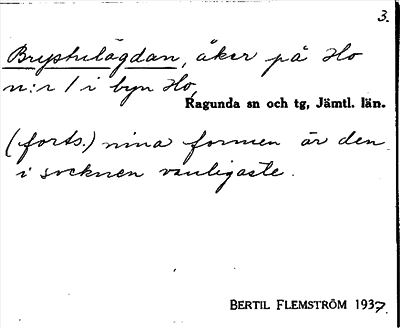 3.
Bryshulägdan, åker på Ho
n:r 1 i byn Ho,
Ragunda sn och tg, Jämtl. län.
(forts.) nina formen är den
i socknen vanligaste.
BERTIL FLEMSTRÖM 1937.